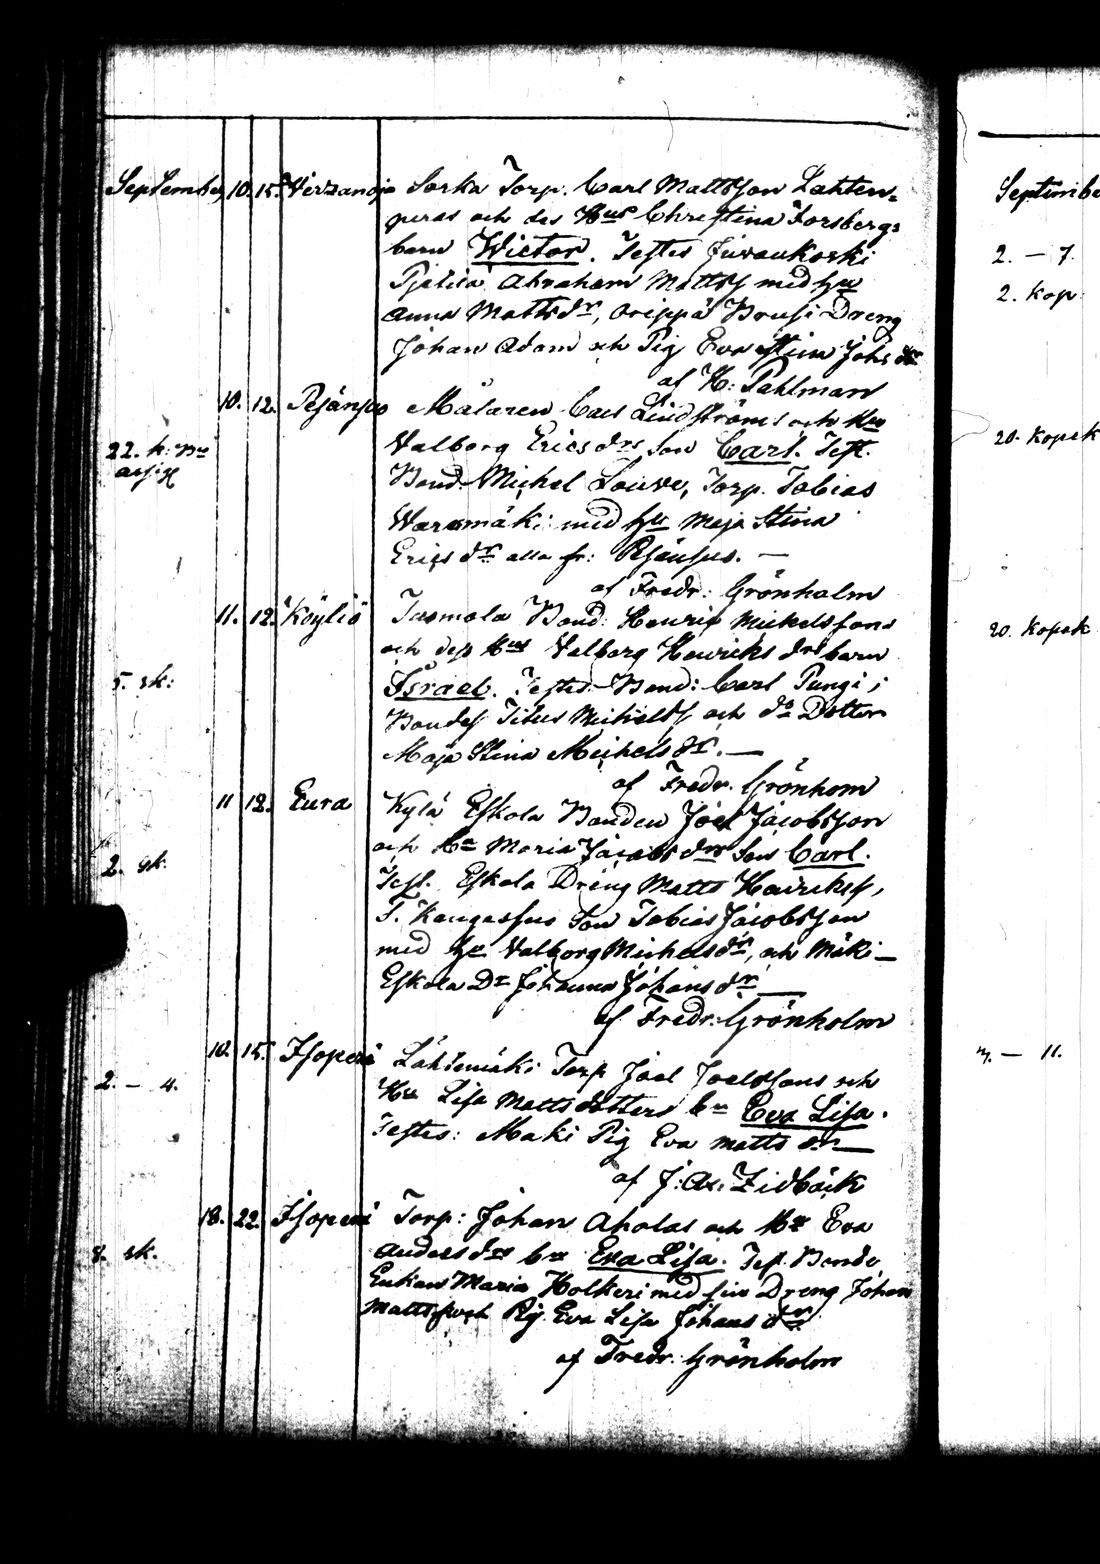 September 10. 15. Sorka Torp. Carl Mattsson Lahten=
peras och des Hus Christina Forsbergs
barn Wictor. Testes Juvankoski
Abraham Mattss med hu
Anna Mattsdr, Orippä Drusi Dreng
Johan Adam och Pig Eva Stina Johs dr
af H: Pahlman
10. 12. Målaren Carl Lindströms och Hus
Valborg Ericsdrs Son Carl. Test.
22. k:
Bond. Michel Souve, Torp. Tobias
Waramäki med hu Maja Stina
Erics dr alla fr:
af Fredr: Grönholm
11. 12. Köyliö Tuomola Bond: Henric Mickelssons
och dess Hus Valborg Henricks drs barn
5. sk: Israel. Testes. Bond: Carl Pungi;
Bondes Titus Michelss och do Dotter
Maja Stina Michels dr. —
af Fredr. Grönhom
11 12. Eura Kylä Eskola Bonden Joel Jacobsson
och Hu Maria Jacobs drs Son Carl.
2. sk. Test. Eskola Dreng Matts Henrickss,
T. Kangassuo Son Tobias Jacobsson
med hu Valborg Michelsdr, och Mäki—
Eskola Dr Johanna Johans dr —
af Fredr: Grönholm
10. 15. Lähtemäki Torp Joel Joelssons och
2. — 4. Hu Lisa Matts dotters bn Eva Lisa.
Testes: Maki Pig Eva Matts dr —
af J: As: Zidbäck
18. 22. Torp: Johan Aholas och Hu Eva
8. sk. Anders drs bn Eva Lisa. Test. Bonde
Enkan Maria Holkeri med sin Dreng Johan
Mattss och Pig Eva Lisa Johans dr
af Fredr. Grönholm
September
2. — 7.
2. Kop:
20. Kopek
20. Kopek
7. — 11.